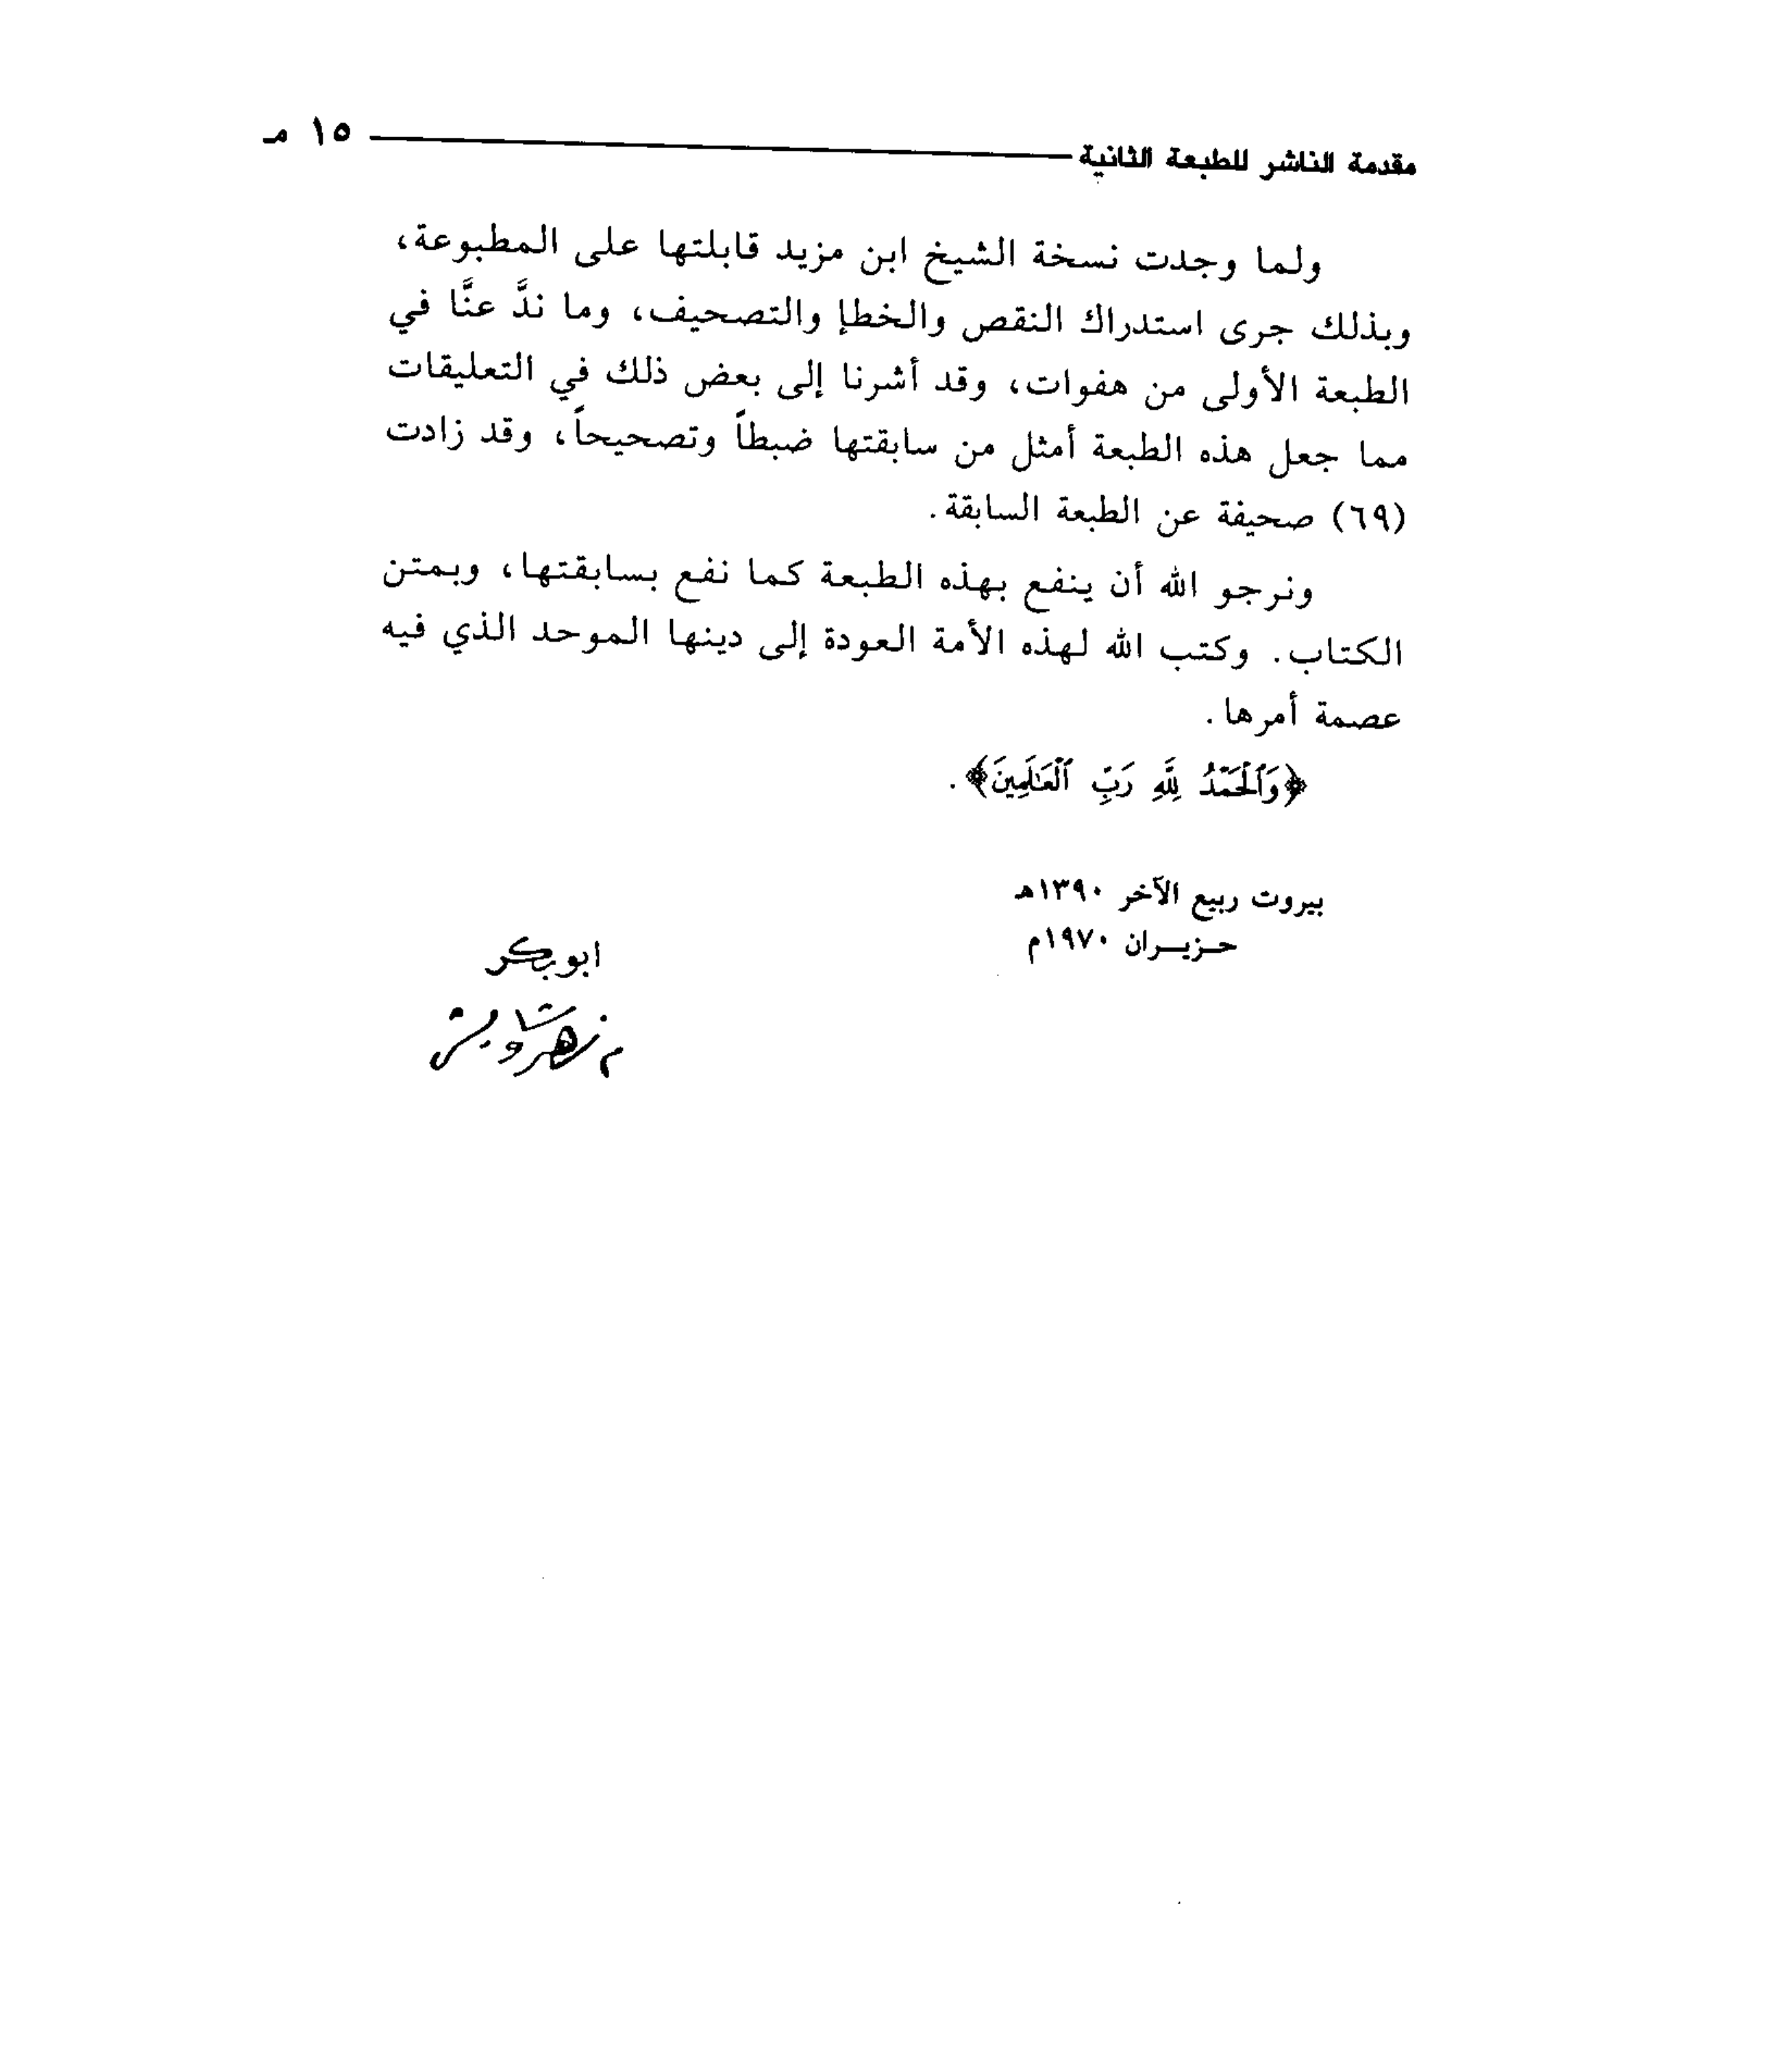 مقدمة الناشر للطبعة الثانية ١٥ مـ
ولما وجدت نسخة الشيخ ابن مزيد قابلتها على المطبوعة،
وبذلك جرى استدراك النقص والخطإ والتصحيف، وما ندَّ عنَّا في
الطبعة الأولى من هفوات، وقد أشرنا إلى بعض ذلك في التعليقات
مما جعل هذه الطبعة أمثل من سابقتها ضبطاً وتصحيحاً، وقد زادت
(٦٩) صحيفة عن الطبعة السابقة.
ونرجو الله أن ينفع بهذه الطبعة كما نفع بسابقتها، وبمتن
الكتاب. وكتب الله لهذه الأمة العودة إلى دينها الموحد الذي فيه
عصمة أمرها.
﴿وَٱلْحَمْدُ لِلَّهِ رَبِّ ٱلْعَٰلَمِينَ﴾.
بيروت ربيع الآخر ١٣٩٠هـ
حـزيـــران ١٩٧٠م
ابو بكر